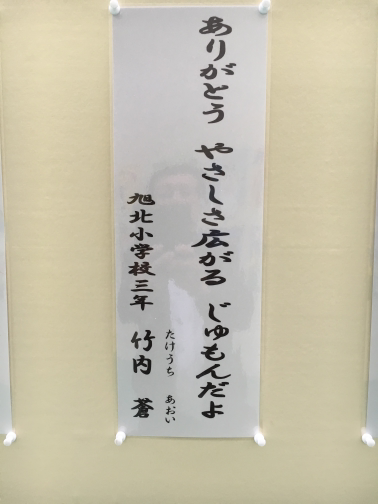 ありがとう やさしさ広がる じゅもんだよ
旭北小学校三年 竹内 蒼
たけうち あおい